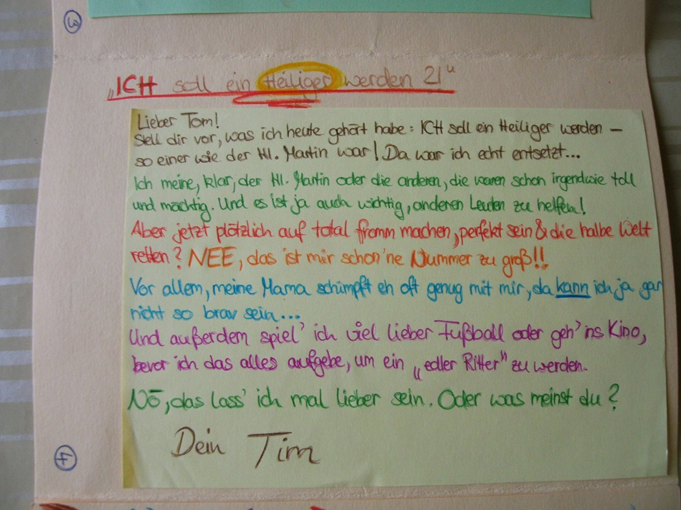 "ICH soll ein Heiliger werden ?!"
Lieber Tom!
Stell dir vor, was ich heute gehört habe: ICH soll ein Heiliger werden –
so einer wie der Hl. Martin war! Da war ich echt entsetzt...
Ich meine, klar, der Hl. Martin oder die anderen, die waren schon irgendwie toll
und mächtig. Und es ist ja auch wichtig, anderen Leuten zu helfen!
Aber jetzt plötzlich auf total fromm machen, perfekt sein & die halbe Welt
retten? NEE, das ist mir schon 'ne Nummer zu groß!!
Vor allem, meine Mama schimpft eh oft genug mit mir, da kann ich ja gar
nicht so brav sein...
Und außerdem spiel' ich viel lieber Fußball oder geh' ins Kino,
bevor ich das alles aufgebe, um ein "edler Ritter" zu werden.
Nö, das lass' ich mal lieber sein. Oder was meinst du?
Dein Tim